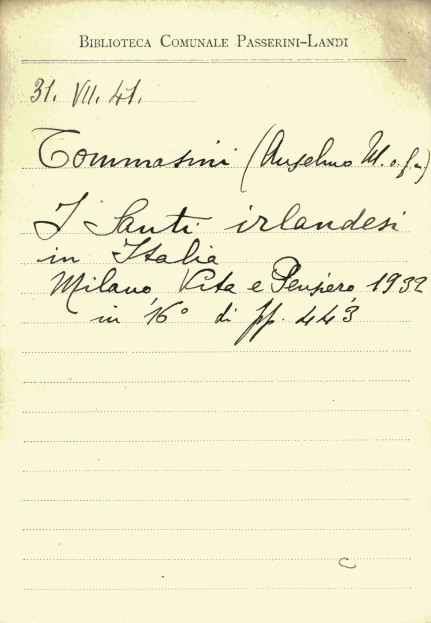 BIBLIOTECA COMUNALE PASSERINI-LANDI
31. VII. 41.
Tommasini (Anselmo M. o. f. m)
I Santi irlandesi
in Italia
Milano, Vita e Pensiero, 1932
in 16° di pp. 443